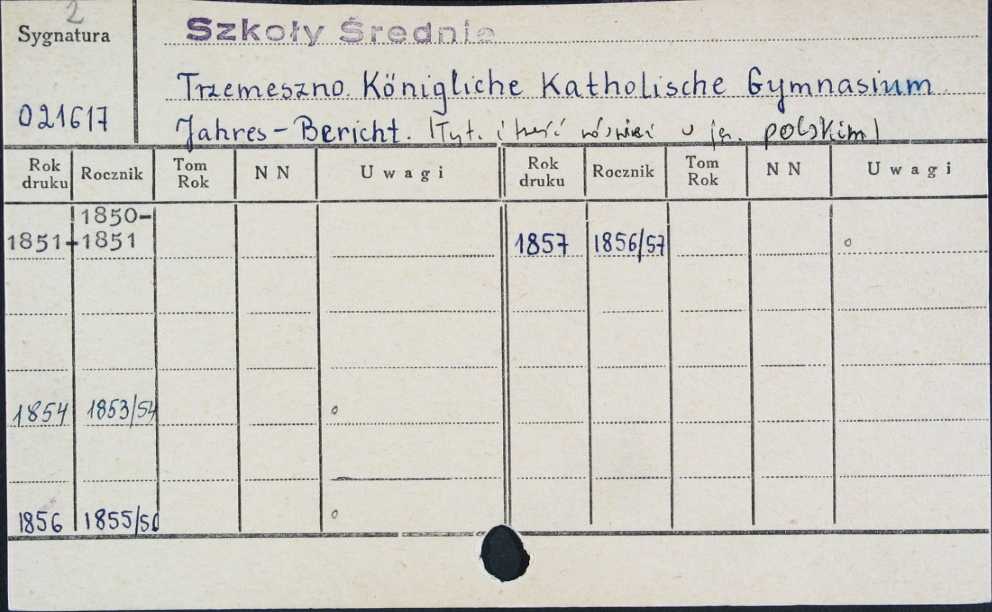 2
Sygnatura
Szkoły Średnie
021617
Trzemeszno. Königliche Katholische Gymnasium
Jahres-Bericht. (Tyt. i treść również w jęz. polskim)
Rok druku Rocznik Tom Rok N N Uwagi Rok druku Rocznik Tom Rok N N Uwagi
1850-
1851-1851 1857 1856/57
1854 1853/54
1856 1855/56